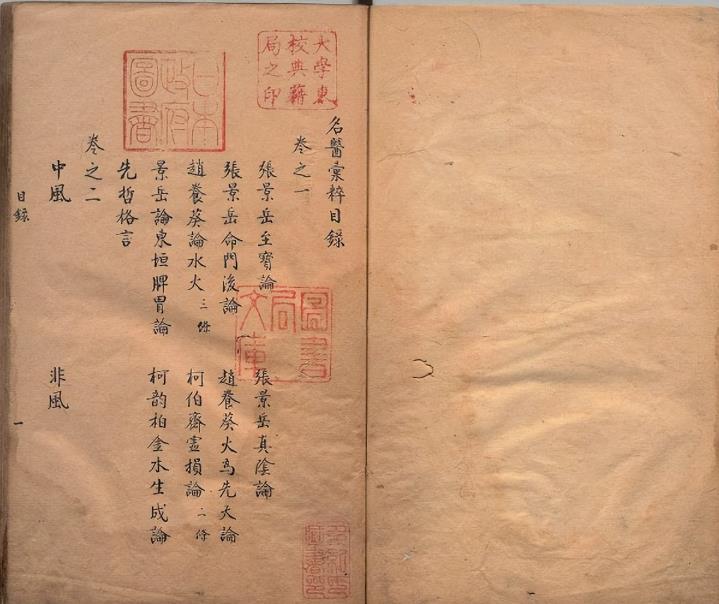 大學東
校典籍
局之印
日本
政府
圖書
名醫彙粹目録
卷之一
張景岳至寶論　張景岳真陰論
張景岳命門後論　趙養葵火為先天論
趙養葵論水火三條　柯伯齋虛損論二條
景岳論東垣脾胃論　柯韵柏金水生成論
先哲格言
卷之二
中風　非風
目録　一
圖書
局
文庫